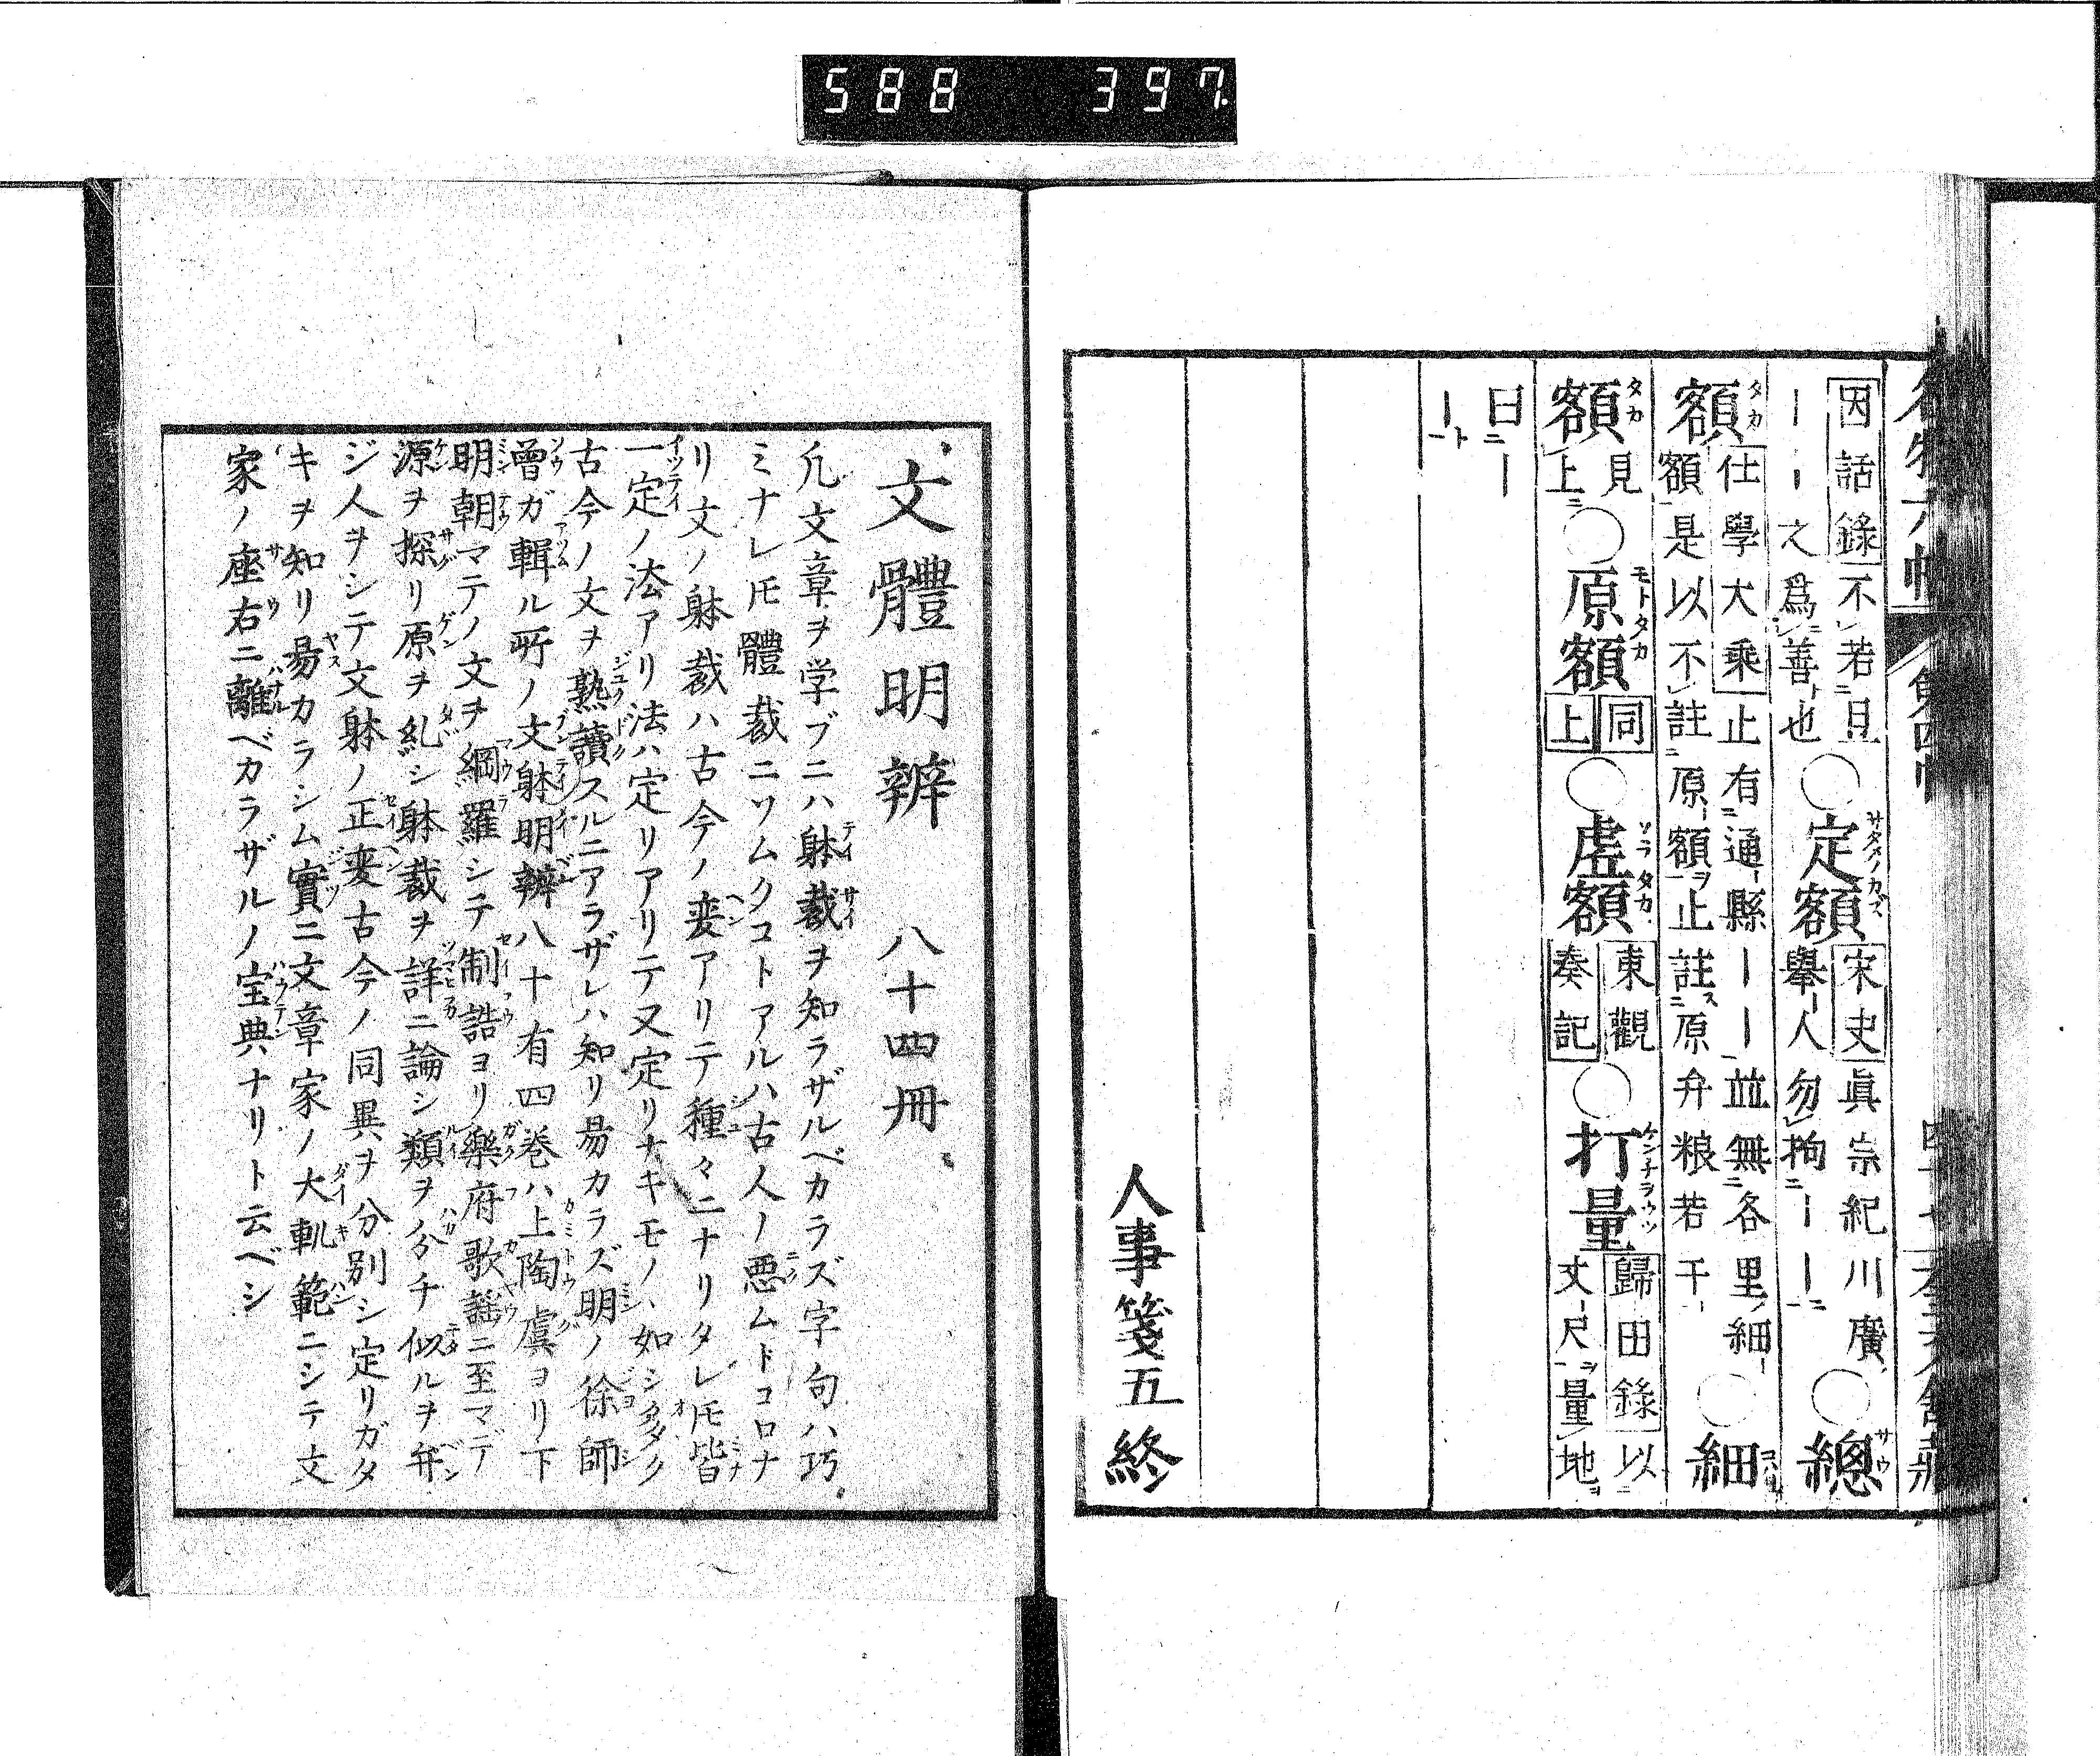 588 397
因話錄 不若日
｜｜之爲善也 ○定額 宋史 眞宗紀川廣
擧人勿拘｜｜ ○總
額 仕學大乘 止有通縣｜｜並無各里細
額是以不註原額止註原弁粮若干 ○細
額 見上 ○原額 同上 ○虗額 東觀奏記 ○打量 歸田錄 以
丈尺量地
曰｜
｜
人事箋五終
文體明辨 八十四冊
凢文章ヲ学ブニハ躰裁ヲ知ラザルベカラズ字句ハ巧
ミナレ𪜈體裁ニソムクコトアルハ古人ノ悪ムトコロナ
リ文ノ躰裁ハ古今ノ変アリテ種々ニナリタレ𪜈皆
一定ノ法アリ法ハ定リアリテ又定リナキモノハ如シ多ク
古今ノ文ヲ熟讀スルニアラザレハ知リ昜カラズ明ノ徐師
曾ガ輯ル所ノ文躰明辨八十有四巻ハ上陶虞ヨリ下
明朝マテノ文ヲ綱羅シテ制誥ヨリ樂府歌謡ニ至マデ
源ヲ探リ原ヲ糺シ躰裁ヲ詳ニ論シ類ヲ分チ似ルヲ弁
ジ人ヲシテ文躰ノ正变古今ノ同異ヲ分別シ定リガタ
キヲ知リ昜カラシム實ニ文章家ノ大軌範ニシテ文
家ノ座右ニ離ベカラザルノ宝典ナリト云ベシ